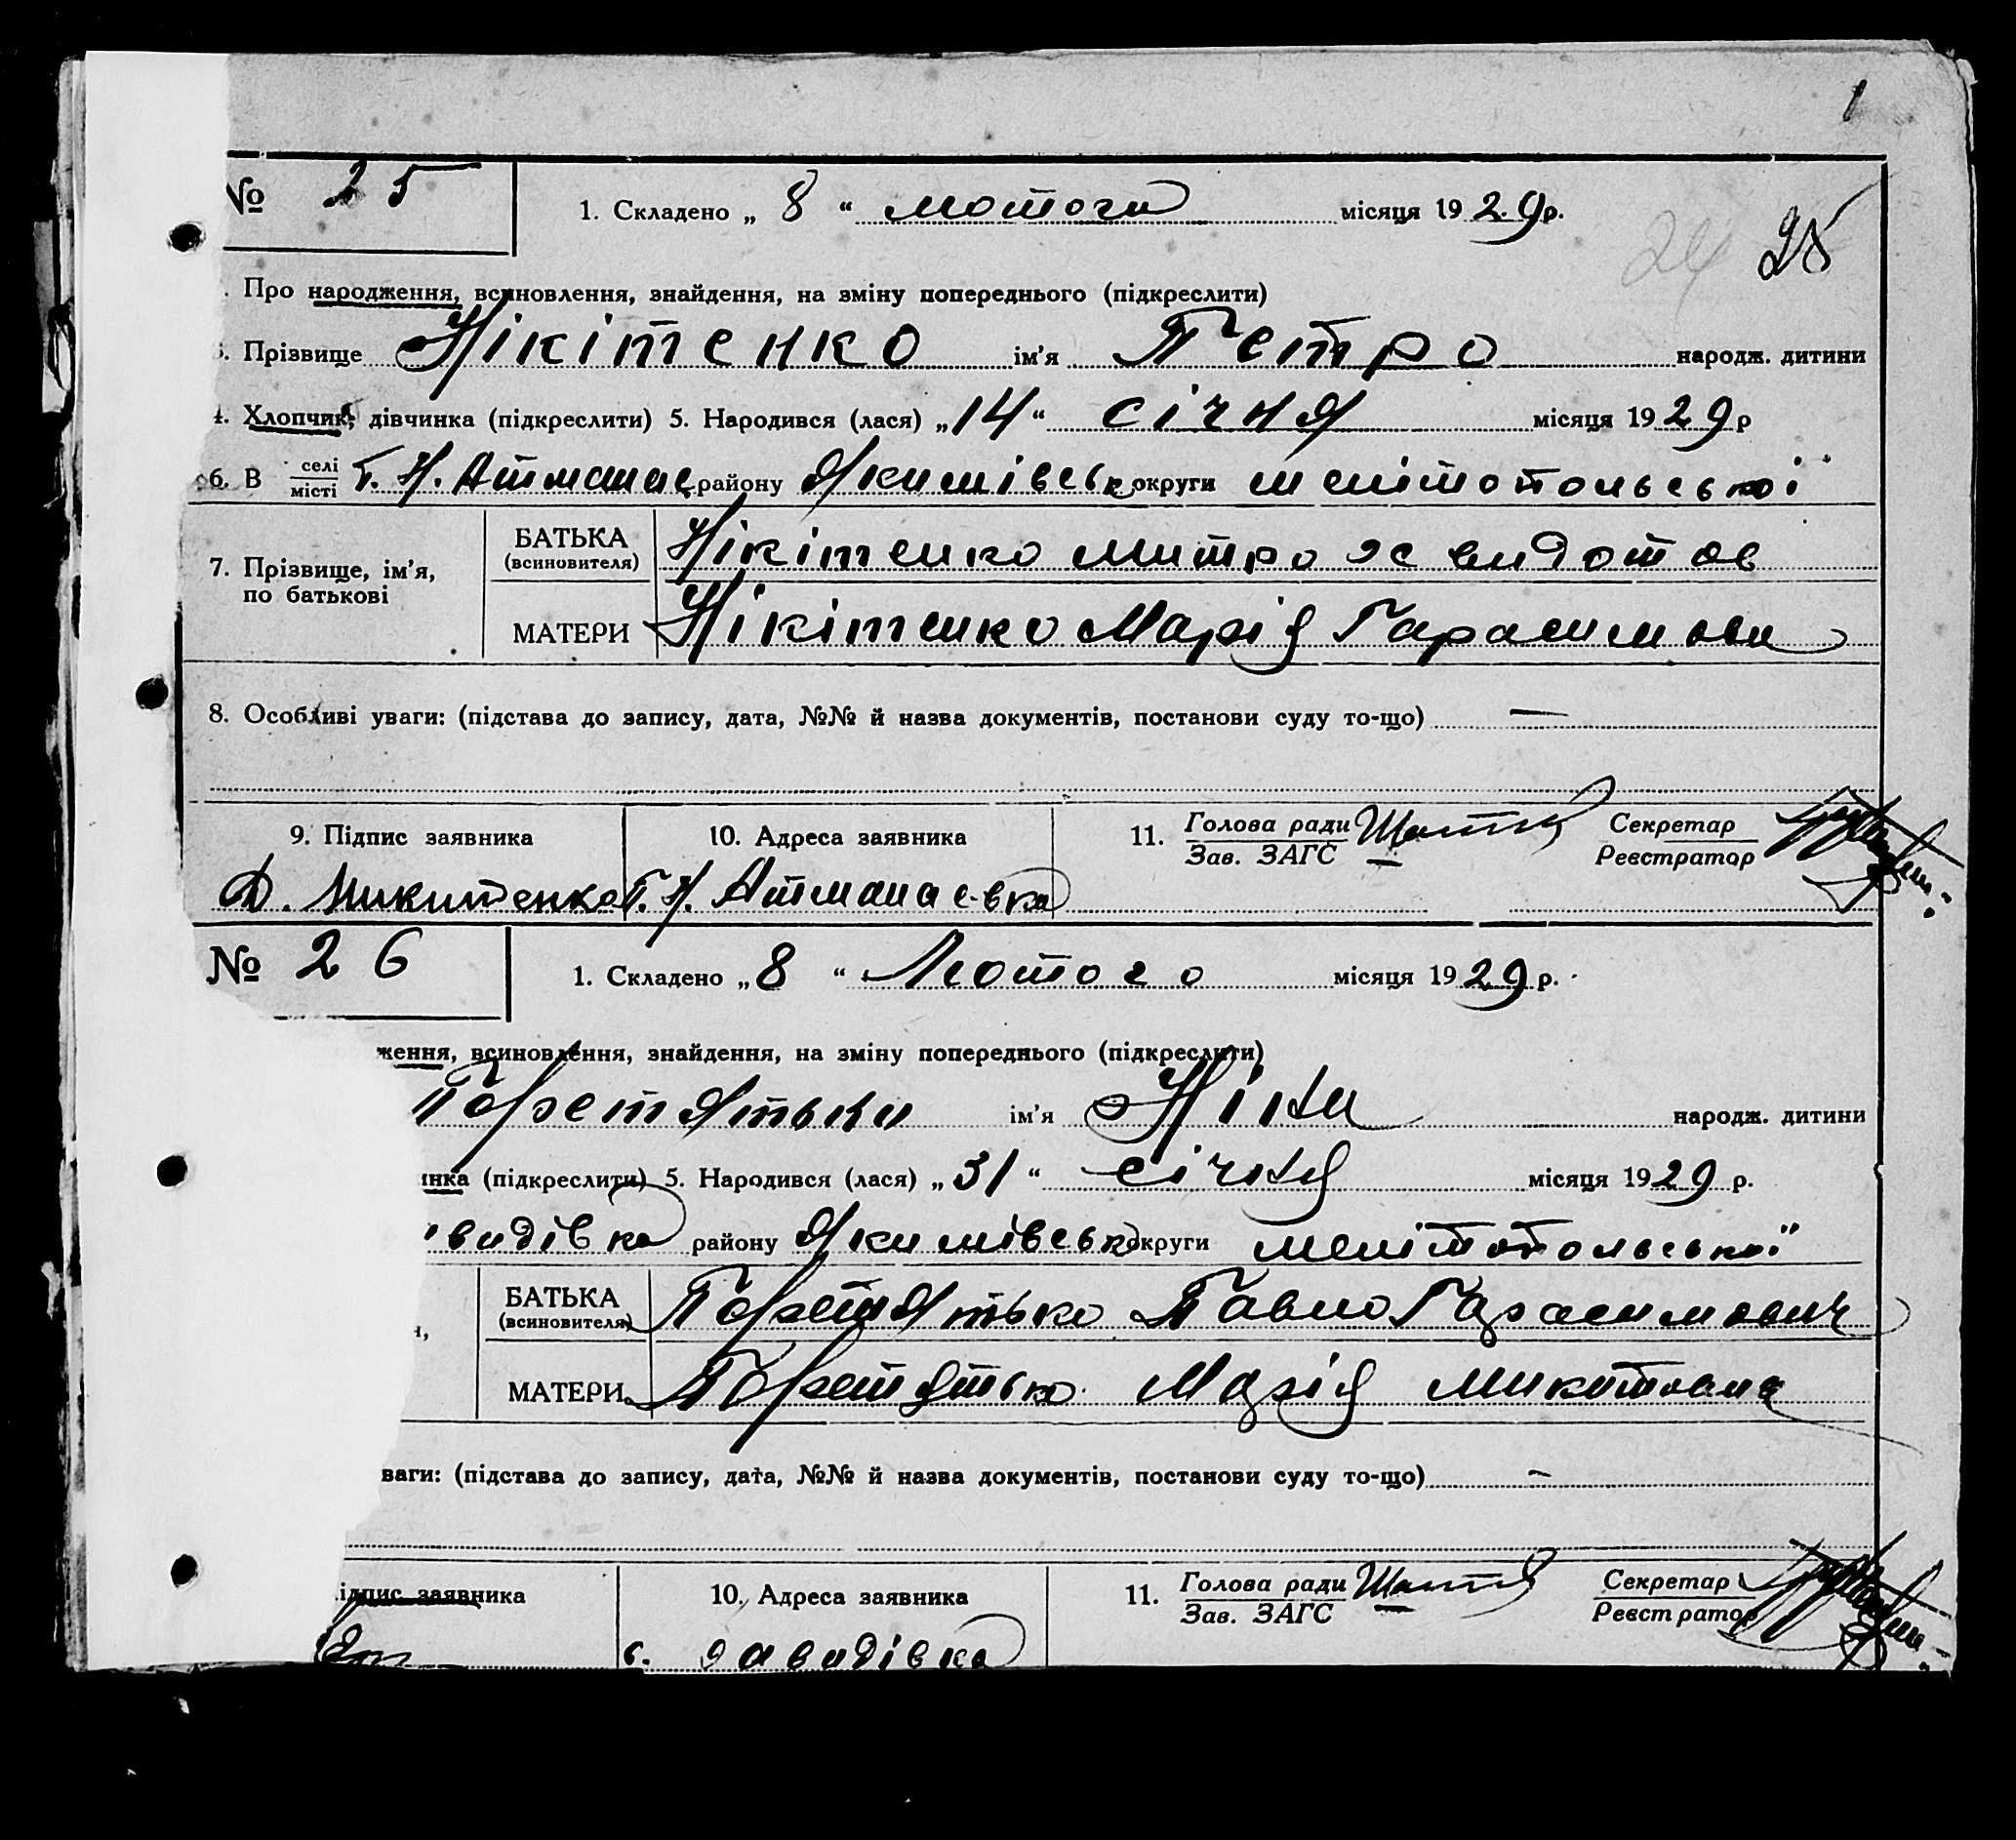 1
№ 25 1. Складено „ 8 “ лютого місяця 1929р.
24 25
Про народження, всиновлення, знайдення, на зміну попереднього (підкреслити)
3. Прізвище Нікітенко ім’я Петро народж. дитини
4. Хлопчик, дівчинка (підкреслити) 5. Народився (лася) „14“ січня місяця 1929р
6. В селі/місті Г. Н. Атманає району Якимівськ округи мелітопольської
7. Прізвище, ім’я, по батькові
БАТЬКА (всиновителя) Нікітенко Митро
МАТЕРИ Нікітенко Марія Гарасимовн
8. Особливі уваги: (підстава до запису, дата, №№ й назва документів, постанови суду то-що) —
9. Підпис заявника 10. Адреса заявника 11. Голова ради/Зав. ЗАГС Секретар/Реєстратор
Д. Никитенко Г. Н. Атманаєвка
№ 26 1. Складено „8 “ Лютого місяця 1929р.
ження, всиновлення, знайдення, на зміну попереднього (підкреслити)
ім’я Ніна народж. дитини
инка (підкреслити) 5. Народився (лася) „31“ січня місяця 1929 р.
видівка району Якимівськ округи мелітопольської
БАТЬКА (всиновителя) Павло Гарасимович
МАТЕРИ Марія Микитовна
ваги: (підстава до запису, дата, №№ й назва документів, постанови суду то-що) —
ідпис заявника 10. Адреса заявника 11. Голова ради/Зав. ЗАГС Секретар/Реєстратор
с. Давидівка